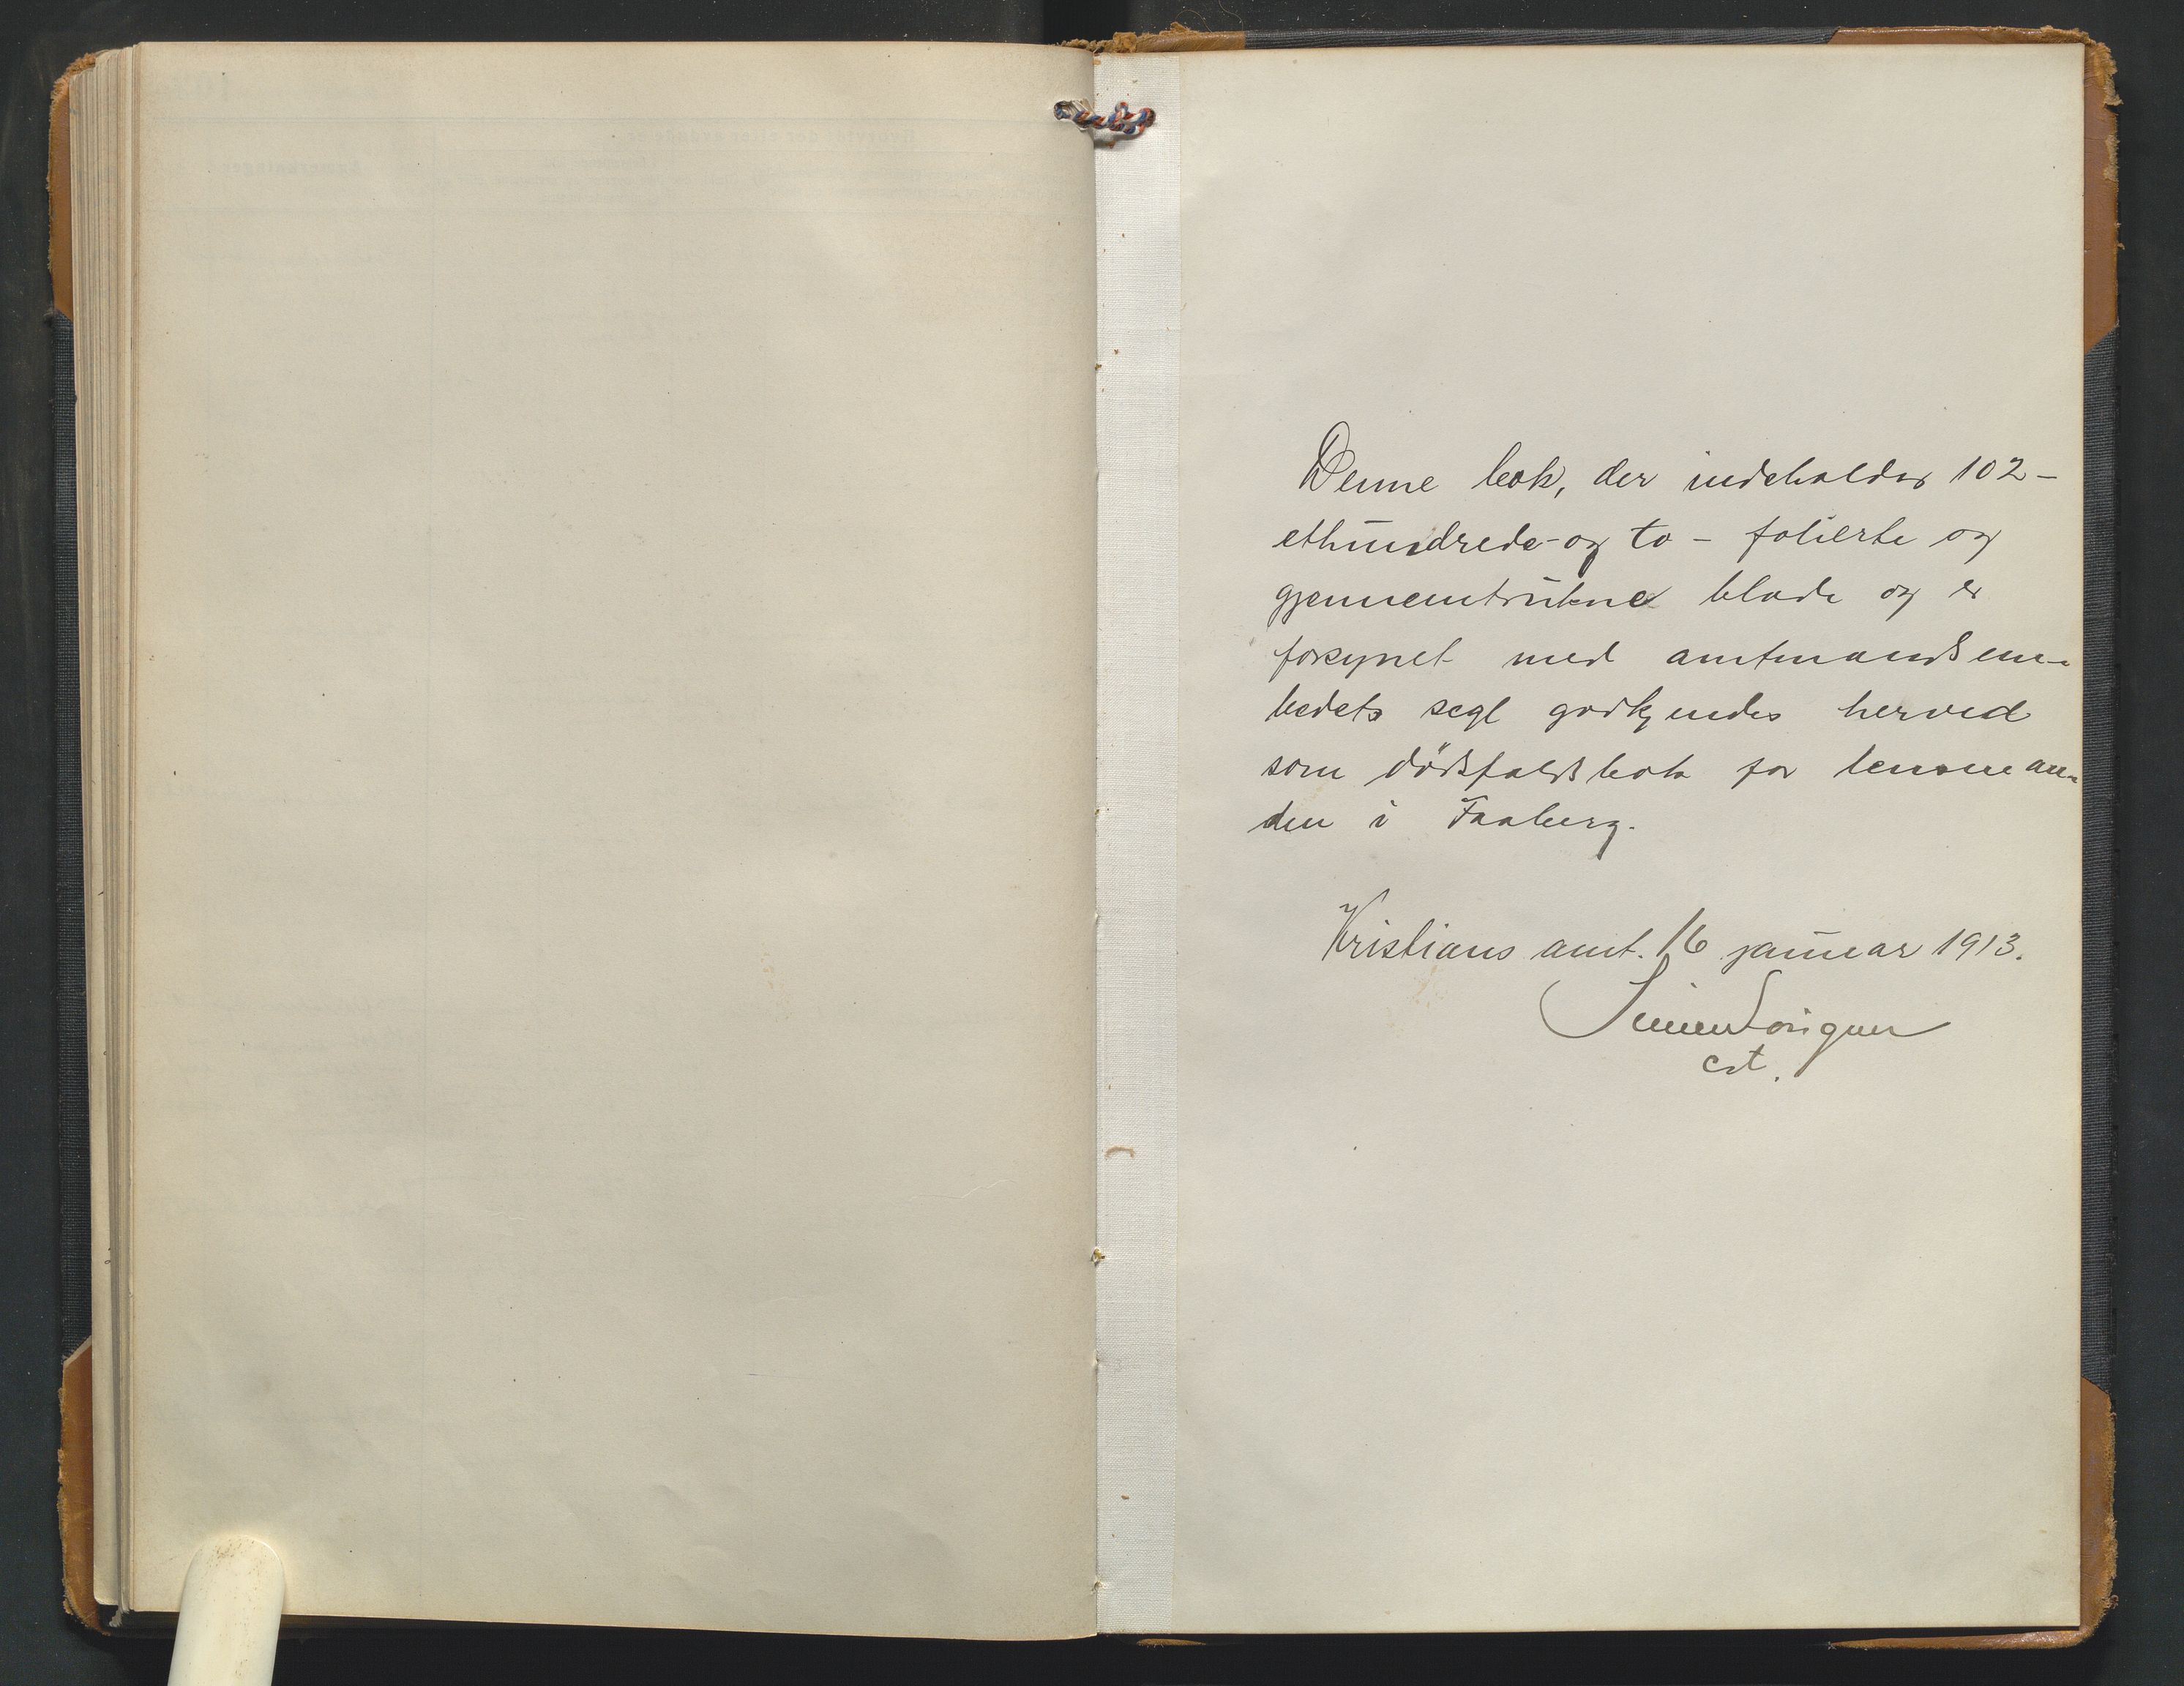 Denne bok, der indeholder 102 -
ethundrede-og to - folierte og
gjennemtrukne blade og er
forsynet med amtmandsem-
bedets segl godkjendes herved
som dödsfaldsbok for lensman-
den i Faaberg.
Kristians amt. 16 januar 1913.
cst.